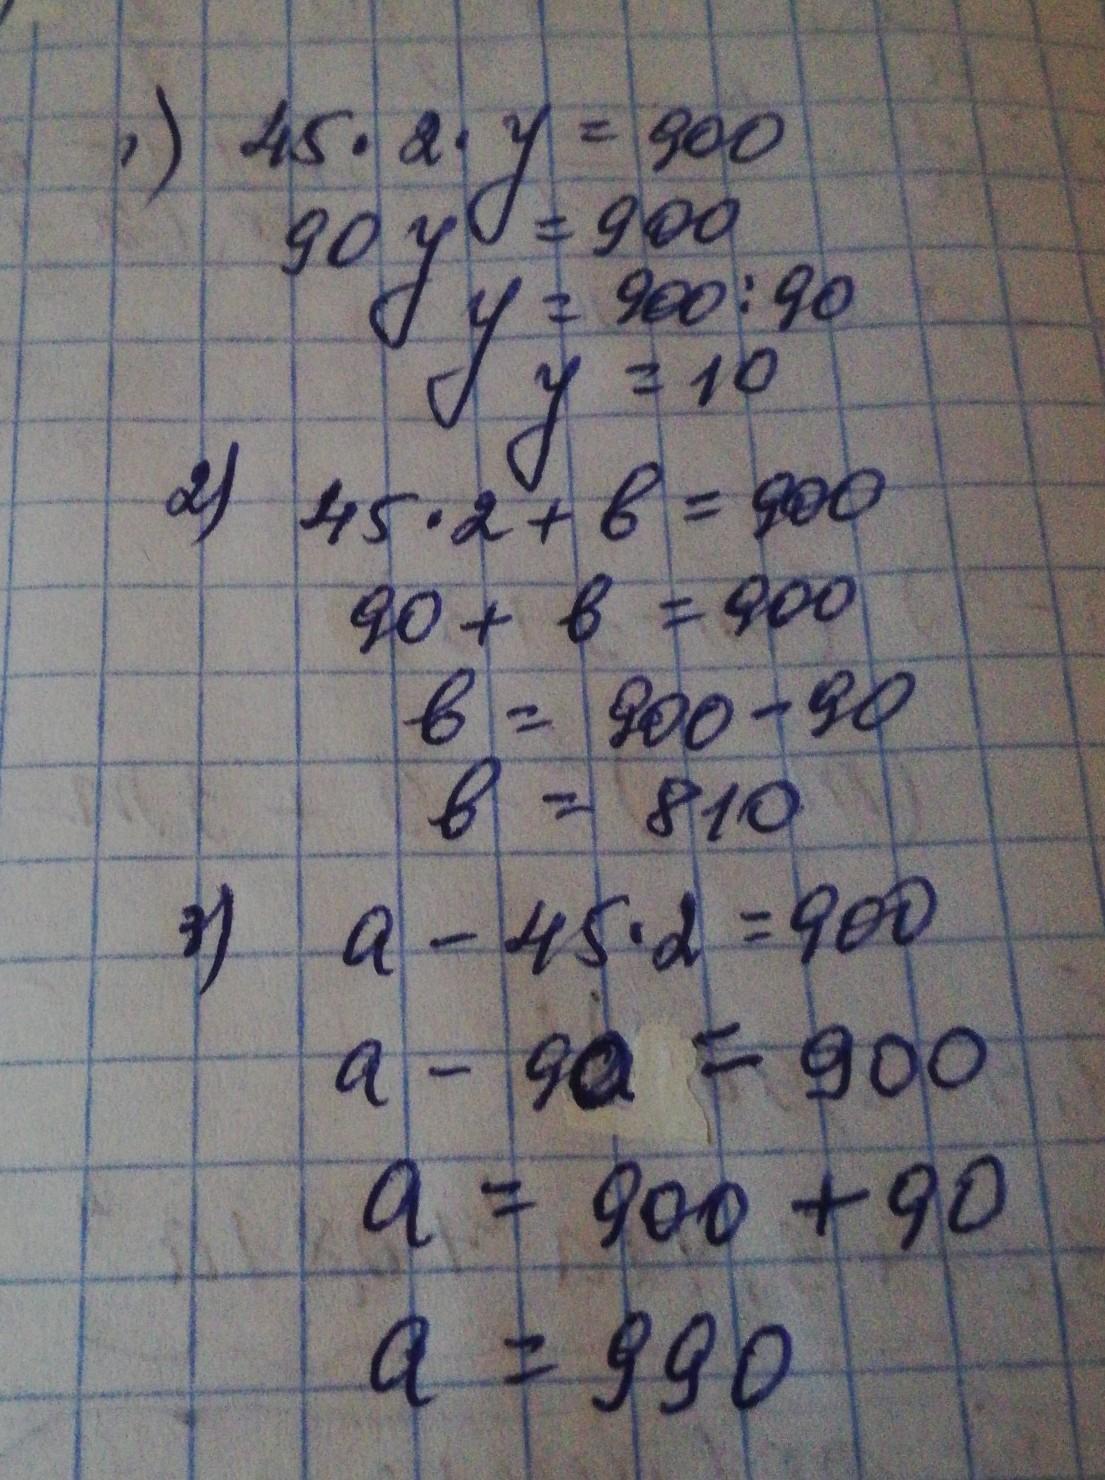 1) 45·2·y=900
90y=900
y=900:90
y=10
2) 45·2+в=900
90+в=900
в=900-90
в=810
3) а-45·2=900
а-90=900
а=900+90
а=990